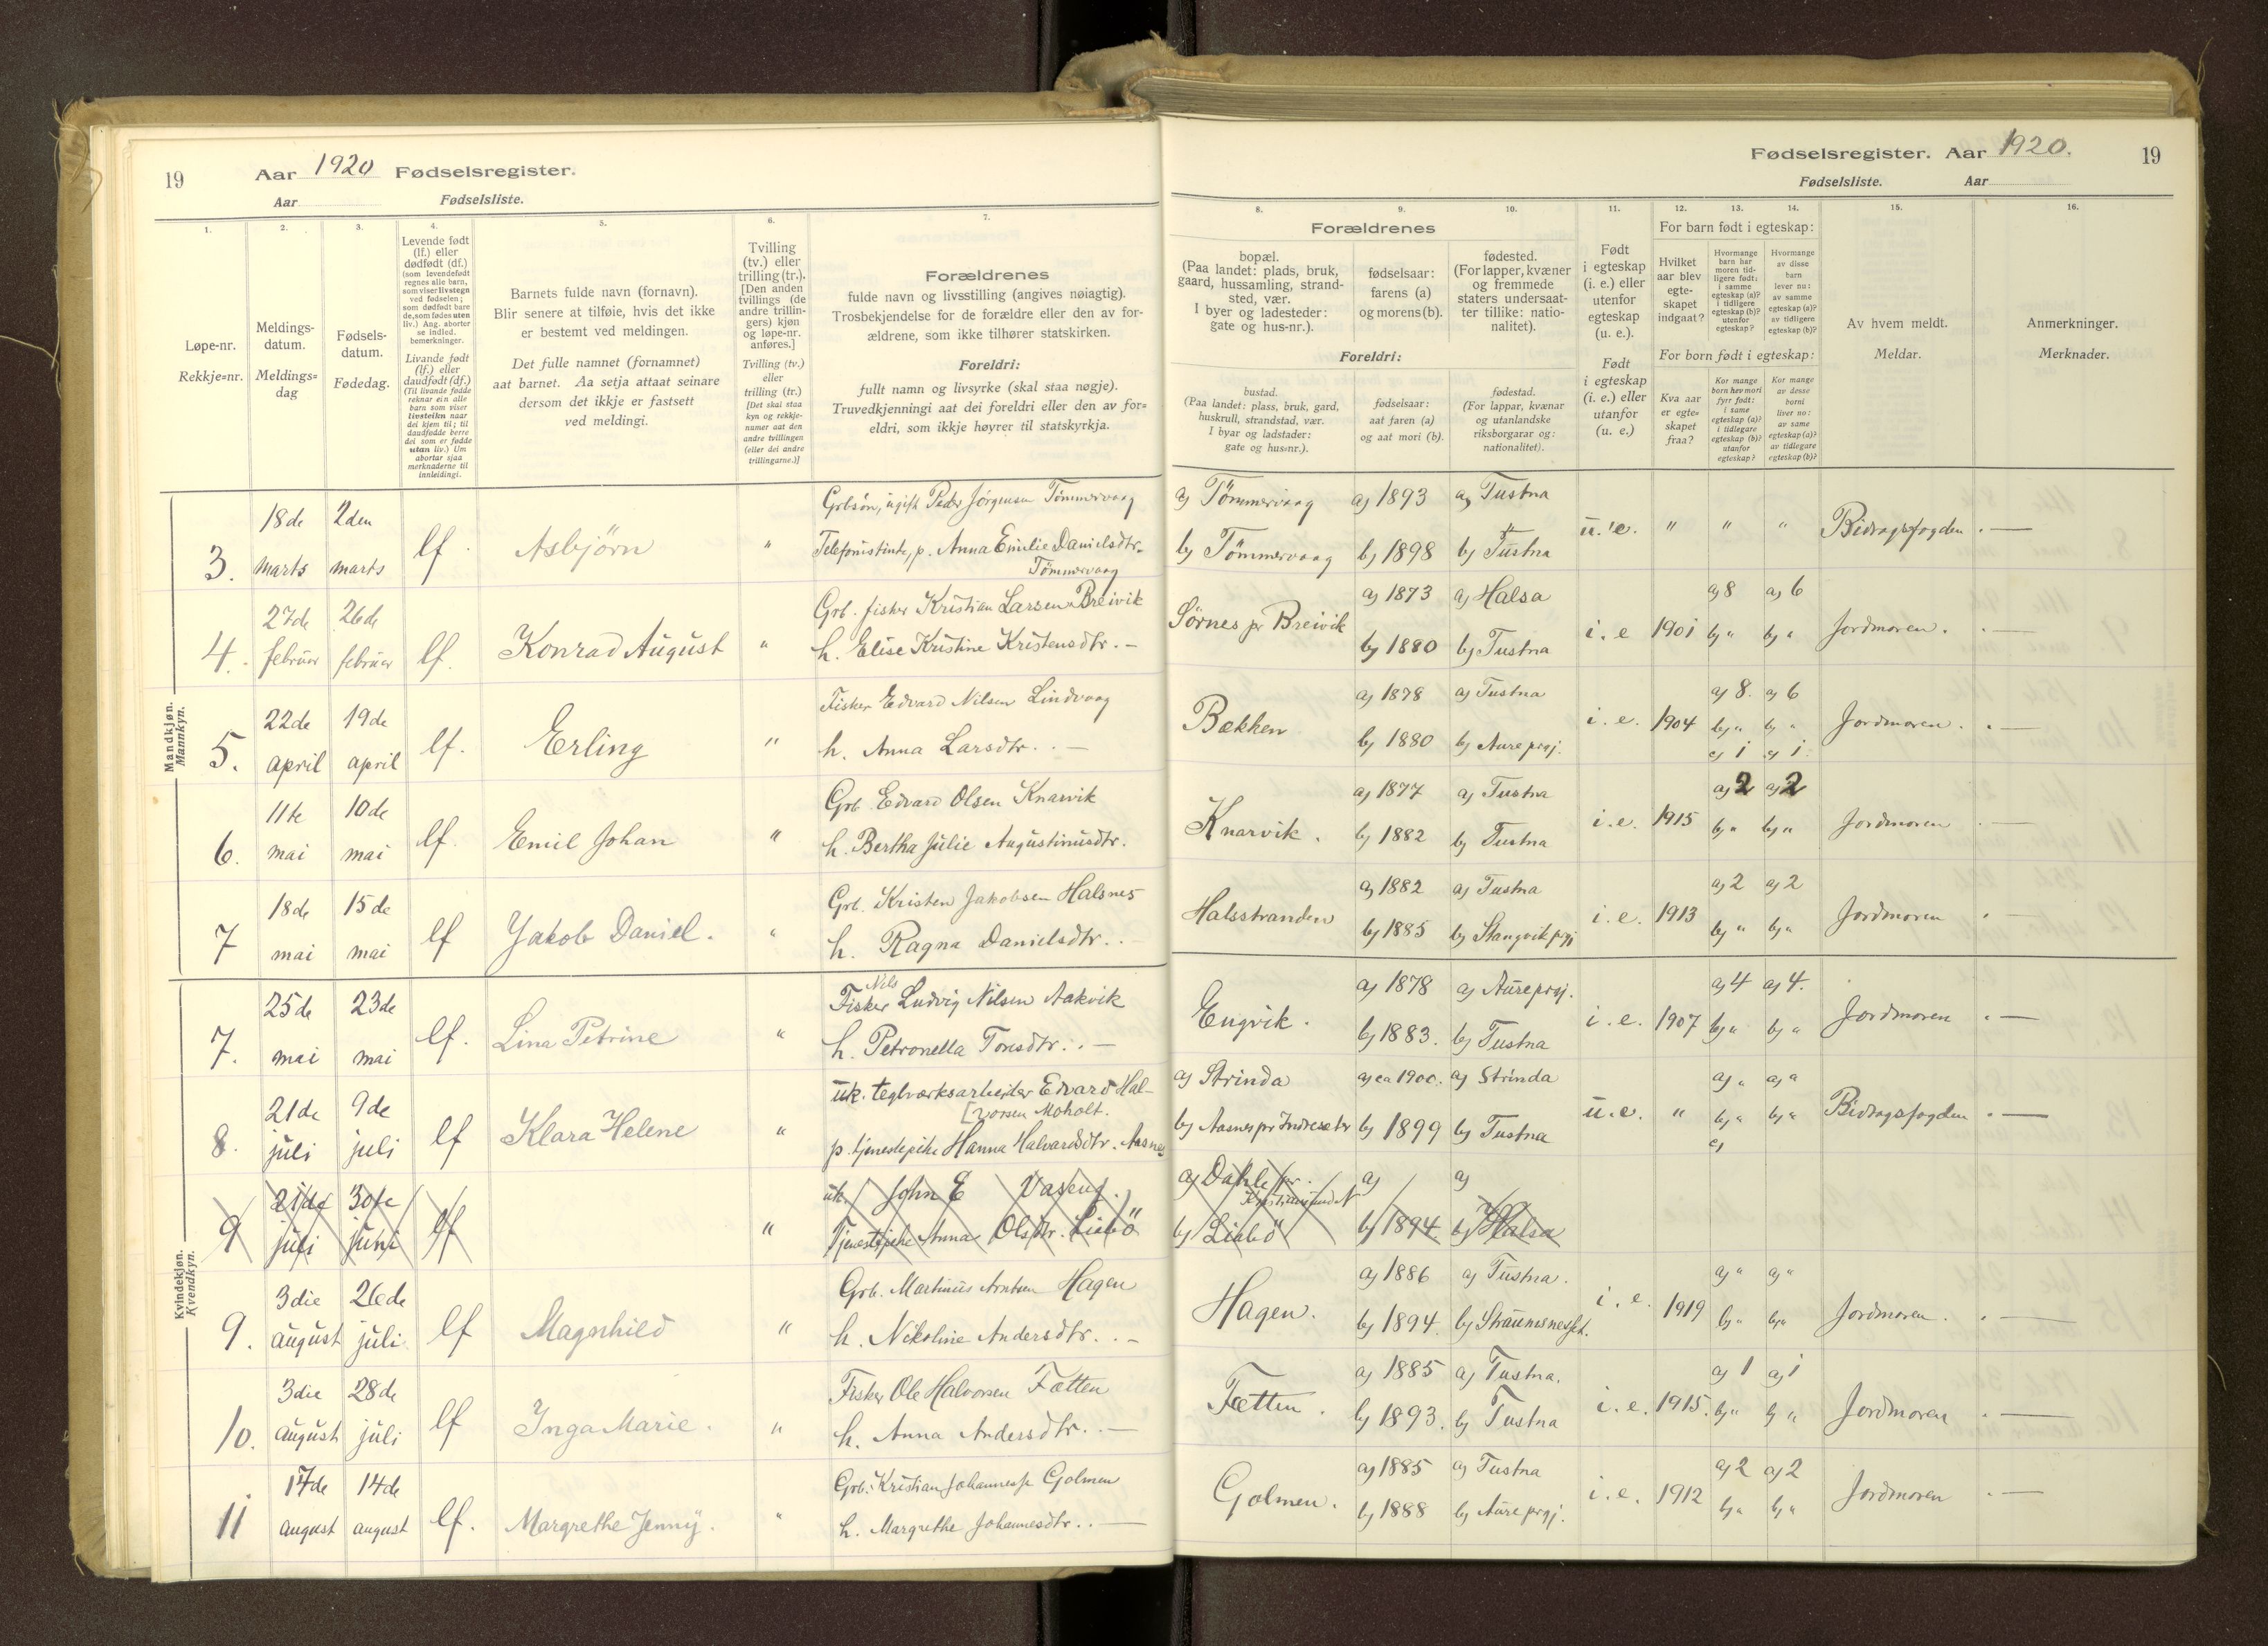 19
Aar 1920 Fødselsregister.
Aar Fødselsliste.
1.
2.
3.
4.
5.
6.
7.
Løpe-nr.
Rekkje=nr.
Meldings-
datum.
Meldings=
dag
Fødsels-
datum.
Fødedag.
Levende født
(lf.) eller
dødfødt (df.)
(som levendefødt
regnes alle barn,
som viser livstegn
ved fødselen;
som dødfødt bare
de, som fødes uten
liv.) Ang. aborter
se indled.
bemerkninger.
Livande født
(lf.) eller
daudfødt (df.)
(Til livande fødde
reknar ein alle
barn som viser
livsteikn naar
dei kjem til; til
daudfødde berre
dei som er fødde
utan liv.) Um
abortar sjaa
merknaderne til
innleidingi.
Barnets fulde navn (fornavn).
Blir senere at tilføie, hvis det ikke
er bestemt ved meldingen.
Det fulle namnet (fornamnet)
aat barnet. Aa setja attaat seinare
dersom det ikkje er fastsett
ved meldingi.
Tvilling
(tv.) eller
trilling (tr.).
[Den anden
tvillings (de
andre trillin-
gers) kjøn
og løpe-nr.
anføres.]
Tvilling (tv.)
eller
trilling (tr.)
[Det skal staa
kyn og rekkje-
numer aat den
andre tvillingen
(eller dei andre
trillingarne.)]
Forældrenes
fulde navn og livsstilling (angives nøiagtig).
Trosbekjendelse for de forældre eller den av for-
ældrene, som ikke tilhører statskirken.
Foreldri:
fullt namn og livsyrke (skal staa nøgje).
Truvedkjenningi aat dei foreldri eller den av for=
eldri, som ikkje høyrer til statskyrkja.
Mandkjøn.
Mannkyn.
3. 18de marts 2den marts lf. Asbjörn "
Grbsøn, ugift Peder Jörgensen Tömmervaag
Telefonistinde, p. Anna Emilie Danielsdtr.
Tömmervaag
4. 27de februar 26de februar lf. Konrad August "
Grb. fisker Kristian Larsen Breivik
h. Elise Kristine Kristensdtr. -
5. 22de april 19de april lf. Erling "
Fisker Edvard Nilsen Lindvaag
h. Anna Larsdtr. . -
6. 11te mai 10de mai lf. Emil Johan "
Grb Edvard Olsen Knarvik
h. Bertha Julie Augustinusdtr.
7 18de mai 15de mai lf Jakob Daniel. "
Grb. Kristen Jakobsen Halsnes
h. Ragna Danielsdtr. .
Kvindekjøn.
Kvendkyn.
7. 25de mai 23de mai lf. Lina Petrine "
Nils
Fisker Ludvig Nilsen Aakvik
h. Petronella Toresdtr. . -
8. 21de juli 9de juli lf Klara Helene "
uk. teglverksarbeider Edvard Hal-
[vorsen Moholt.
p. tjenestepike Hanna Halvardsdtr. Aasnes
9 21de juli 30te juni lf "
uk. John E Vaseng.
Tjenestepike Anna Olsdtr. Liabö
9. 3die august 26de juli lf Magnhild "
Grb. Martinus Arntsen Hagen
h. Nikoline Andersdtr. . -
10. 3die august 28de juli lf Inga Marie. "
Fisker Ole Halvorsen Fætten
h. Anna Andersdtr. . -
11 17de august 14de august lf. Margrethe Jenny. "
Grb. Kristian Johannes Golmen
h. Margrethe Johannesdtr. . -
Fødselsregister. Aar 1920.
19
Fødselsliste. Aar
8.
9.
10.
11.
12.
13.
14.
15.
16.
Forældrenes
bopæl.
(Paa landet: plads, bruk,
gaard, hussamling, strand-
sted, vær.
I byer og ladesteder:
gate og hus-nr.).
fødselsaar:
farens (a)
og morens (b).
fødested.
(For lapper, kvæner
og fremmede
staters undersaat-
ter tillike: natio-
nalitet).
Foreldri:
bustad.
(Paa landet: plass, bruk, gard,
huskrull, strandstad, vær.
I byar og ladstader:
gate og hus=nr.).
fødselsaar:
aat faren (a)
og aat mori (b).
fødestad.
(For lappar, kvænar
og utanlandske
riksborgarar og:
nationalitet).
Født
i egteskap
(i. e.) eller
utenfor
egteskap
(u. e.).
Født
i egteskap
(i. e.) eller
utanfor
(u. e.)
For barn født i egteskap:
Hvilket
aar blev
egte-
skapet
indgaat?
Hvormange
barn har
moren tid-
ligere født:
i samme
egteskap (a)?
i tidligere
egteskap (b)?
utenfor
egteskap?
Hvormange
av disse
barn
lever nu:
av samme
egteskap (a)?
av tidligere
egteskap (b)?
For born født i egteskap:
Kva aar
er egte=
skapet
fraa?
Kor mange
born hev mori
fyrr født:
i same
egteskap (a)?
i tidlegare
egteskap (b)?
utanfor
egteskap?
Kor mange
av desse
borni
liver no:
av same
egteskap (a)?
av tidlegare
egteskap (b)?
Av hvem meldt.
Meldar.
Anmerkninger.
Merknader.
a) Tömmervaag a) 1893 a) Tustna
b) Tömmervaag b) 1898 b) Tustna u. e. " " " Bidragsfogden . —
Sörnes pr Breivik a) 1873 a) Halsa a) 8 a) 6
b) 1880 b) Tustna i. e 1901 b) " b) " Jordmoren. . —
Bækken a) 1878 a) Tustna a) 8. a) 6
b) 1880 b) Aure prgj. i. e. 1904 b) " b) " Jordmoren. . —
c) 1 c) 1
Knarvik. a) 1877 a) Tustna a) 2 a) 2
b) 1882 b) Tustna i. e. 1915 b) " b) " Jordmoren . —
Halsstranden a) 1882 a) Tustna a) 2 a) 2
b) 1885 b) Stangvik prgj i. e. 1913 b) " b) " Jordmoren . —
Engvik. a) 1878 a) Aure prgj. a) 4 a) 4.
b) 1883. b) Tustna i. e. 1907 b) " b) " Jordmoren . —
a) Strinda a) ca 1900. a) Strinda a) " a) "
b) Aasnes pr Indresæter b) 1899 b) Tustna u. e. " b) " b) " Bidragsfogden . —
c)
a) Dahle pr. a) a)
Kristiansund N
b) Liabö b) 1894 b) Halsa
Hagen. a) 1886 a) Tustna. a) " a) "
b) 1894. b) Straumsnes i. e. 1919 b) " b) " Jordmoren. . —
Fætten. a) 1885 a) Tustna. a) 1 a) 1
b) 1893. b) Tustna i. e. 1915. b) " b) " Jordmoren . —
Golmen. a) 1885 a) Tustna a) 2 a) 2
b) 1888 b) Aure prgj. i. e. 1912 b) " b) " Jordmoren . —